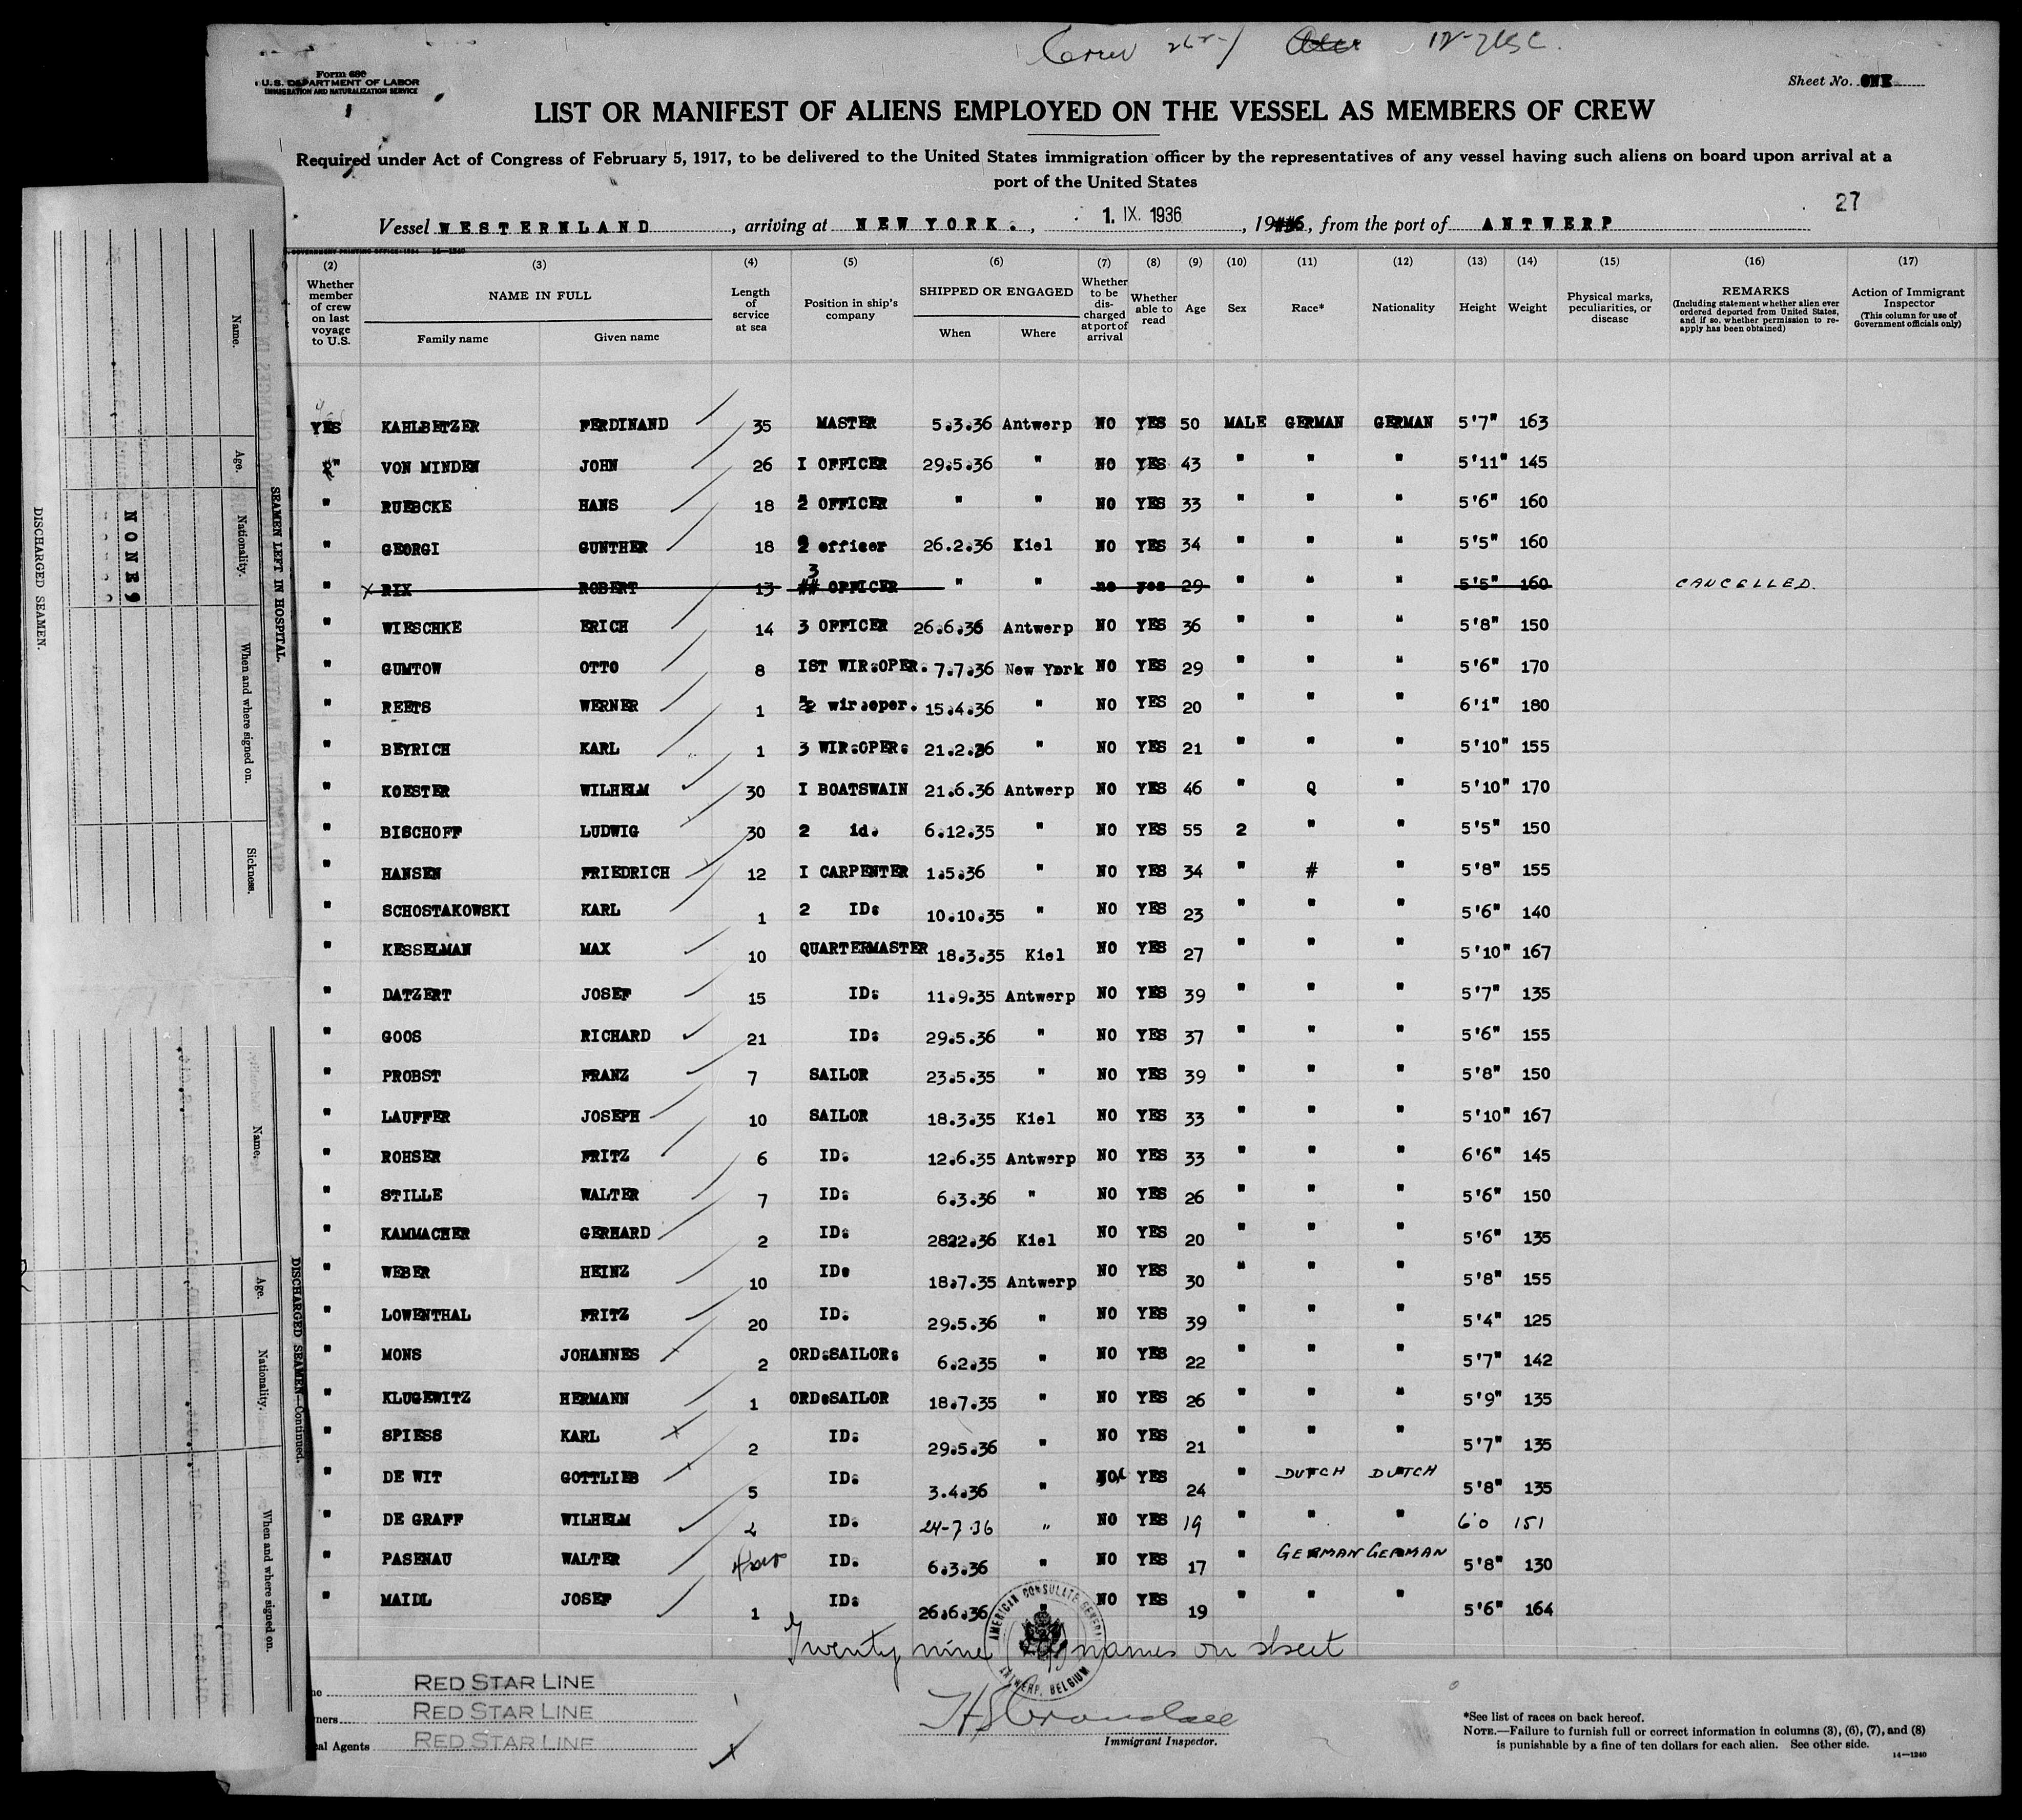 Crew
Sheet No. ONE
Form 680
U.S. DEPARTMENT OF LABOR
IMMIGRATION AND NATURALIZATION SERVICE
LIST OR MANIFEST OF ALIENS EMPLOYED ON THE VESSEL AS MEMBERS OF CREW
Required under Act of Congress of February 5, 1917, to be delivered to the United States immigration officer by the representatives of any vessel having such aliens on board upon arrival at a
port of the United States
27
Vessel WESTERNLAND, arriving at NEW YORK., 1. IX. 1936, 19##6, from the port of ANTWERP
(2) (3) (4) (5) (6) (7) (8) (9) (10) (11) (12) (13) (14) (15) (16) (17)
Whether member of crew on last voyage to U.S. NAME IN FULL Family name Given name Length of service at sea Position in ship's company SHIPPED OR ENGAGED When Where Whether to be discharged at port of arrival Whether able to read Age Sex Race* Nationality Height Weight Physical marks, peculiarities, or disease REMARKS (Including statement whether alien ever ordered deported from United States, and if so, whether permission to re-apply has been obtained) Action of Immigrant Inspector (This column for use of Government officials only)
YES KAHLBETZER FERDINAND 35 MASTER 5.3.36 Antwerp NO YES 50 MALE GERMAN GERMAN 5'7" 163
" VON MINDEN JOHN 26 I OFFICER 29.5.36 " NO YES 43 " " " 5'11" 145
" RUEBCKE HANS 18 2 OFFICER " " NO YES 33 " " " 5'6" 160
" GEORGI GUNTHER 18 2 officer 26.2.36 Kiel NO YES 34 " " " 5'5" 160
" RIX ROBERT 13 3 ## OFFICER " " no yes 29 " " " 5'5" 160 CANCELLED.
" WIESCHKE ERICH 14 3 OFFICER 26.6.36 Antwerp NO YES 36 " " " 5'8" 150
" GUMTOW OTTO 8 IST WIR.OPER. 7.7.36 New York NO YES 29 " " " 5'6" 170
" REETS WERNER 1 2 wir.oper. 15.4.36 " NO YES 20 " " " 6'1" 180
" BEYRICH KARL 1 3 WIR.OPER. 21.2.36 " NO YES 21 " " " 5'10" 155
" KOESTER WILHELM 30 I BOATSWAIN 21.6.36 Antwerp NO YES 46 " Q " 5'10" 170
" BISCHOFF LUDWIG 30 2 id. 6.12.35 " NO YES 55 2 " " 5'5" 150
" HANSEN FRIEDRICH 12 I CARPENTER 1.5.36 " NO YES 34 " # " 5'8" 155
" SCHOSTAKOWSKI KARL 1 2 ID. 10.10.35 " NO YES 23 " " " 5'6" 140
" KESSELMAN MAX 10 QUARTERMASTER 18.3.35 Kiel NO YES 27 " " " 5'10" 167
" DATZERT JOSEF 15 ID. 11.9.35 Antwerp NO YES 39 " " " 5'7" 135
" GOOS RICHARD 21 ID. 29.5.36 " NO YES 37 " " " 5'6" 155
" PROBST FRANZ 7 SAILOR 23.5.35 " NO YES 39 " " " 5'8" 150
" LAUFFER JOSEPH 10 SAILOR 18.3.35 Kiel NO YES 33 " " " 5'10" 167
" ROHSER FRITZ 6 ID. 12.6.35 Antwerp NO YES 33 " " " 6'6" 145
" STILLE WALTER 7 ID. 6.3.36 " NO YES 26 " " " 5'6" 150
" KAMMACHER GERHARD 2 ID. 2822.36 Kiel NO YES 20 " " " 5'6" 135
" WEBER HEINZ 10 ID. 18.7.35 Antwerp NO YES 30 " " " 5'8" 155
" LOWENTHAL FRITZ 20 ID. 29.5.36 " NO YES 39 " " " 5'4" 125
" MONS JOHANNES 2 ORD.SAILOR. 6.2.35 " NO YES 22 " " " 5'7" 142
" KLUGEWITZ HERMANN 1 ORD.SAILOR 18.7.35 " NO YES 26 " " " 5'9" 135
" SPIESS KARL 2 ID. 29.5.36 " NO YES 21 " " " 5'7" 135
" DE WIT GOTTLIEB 5 ID. 3.4.36 " NO YES 24 " DUTCH DUTCH 5'8" 135
" DE GRAFF WILHELM 2 ID. 24-7.36 " NO YES 19 " " " 6'0 151
" PASENAU WALTER ID. 6.3.36 " NO YES 17 " GERMAN GERMAN 5'8" 130
" MAIDL JOSEF 1 ID. 26.6.36 " NO YES 19 " " " 5'6" 164
Twenty nine names on sheet
AMERICAN CONSULATE GENERAL ANTWERP, BELGIUM
RED STAR LINE
RED STAR LINE
al Agents RED STAR LINE
Immigrant Inspector.
*See list of races on back hereof.
NOTE.—Failure to furnish full or correct information in columns (3), (6), (7), and (8)
is punishable by a fine of ten dollars for each alien. See other side.
14—1240
SEAMEN LEFT IN HOSPITAL.
Name. Age. Nationality. When and where signed on. Sickness.
NONE
DISCHARGED SEAMEN.
DISCHARGED SEAMEN—Continued.
Name. Age. Nationality. When and where signed on.